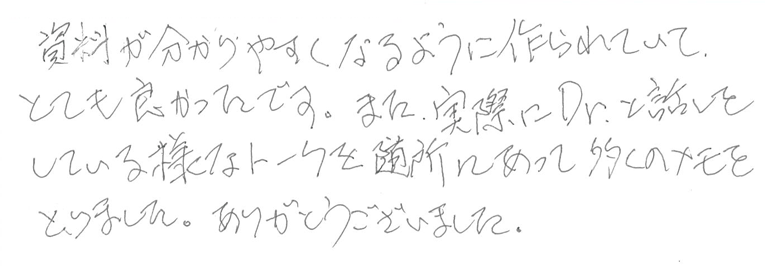 資料が分かりやすくなるように作られていて、
とても良かったです。また、実際にDr.と話しを
している様なトークを随所にあって多くのメモを
とりました。ありがとうございました。